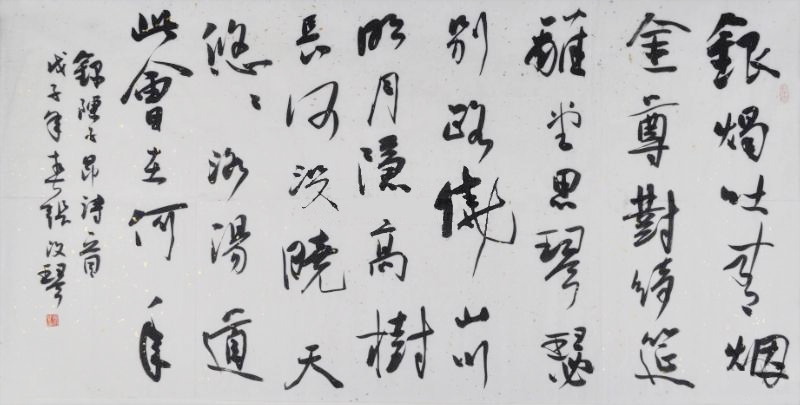 銀燭吐青烟
金尊對綺筵
離堂思琴瑟
別路繞山川
明月隱高樹
長河没曉天
悠悠洛陽道
此會在何年
錄陳子昂詩一首
戊子年春張改琴